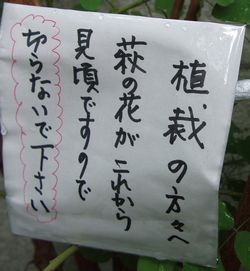 植裁の方々へ
萩の花がこれから
見頃ですので
切らないで下さい